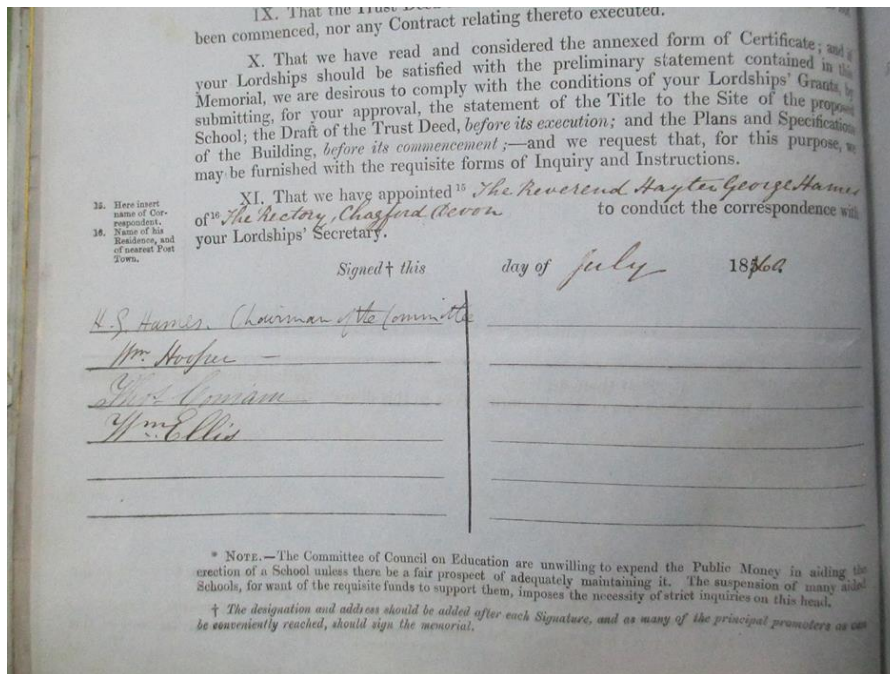 IX. That the Trust Deed
been commenced, nor any Contract relating thereto executed.
X. That we have read and considered the annexed form of Certificate; and if
your Lordships should be satisfied with the preliminary statement contained in this
Memorial, we are desirous to comply with the conditions of your Lordships' Grants, by
submitting, for your approval, the statement of the Title to the Site of the proposed
School; the Draft of the Trust Deed, before its execution; and the Plans and Specifications
of the Building, before its commencement;—and we request that, for this purpose, we
may be furnished with the requisite forms of Inquiry and Instructions.
XI. That we have appointed 15 The Reverend Hayter George Hames
of 16 The Rectory, Chagford Devon to conduct the correspondence with
your Lordships' Secretary.
15. Here insert
name of Cor-
respondent.
16. Name of his
Residence, and
of nearest Post
Town.
Signed † this day of July 1860
H. G Hames. Chairman of the Committee
Wm. Hooper —
Thos.
Wm. Ellis
* NOTE.—The Committee of Council on Education are unwilling to expend the Public Money in aiding the
erection of a School unless there be a fair prospect of adequately maintaining it. The suspension of many aided
Schools, for want of the requisite funds to support them, imposes the necessity of strict inquiries on this head.
† The designation and address should be added after each Signature, and as many of the principal promoters as can
be conveniently reached, should sign the memorial.